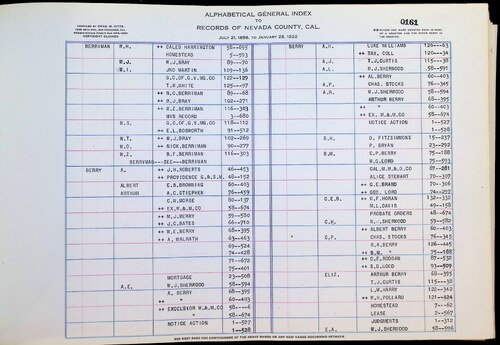 ALPHABETICAL GENERAL INDEX
TO
RECORDS OF NEVADA COUNTY, CAL.
JULY 21, 1856, TO JANUARY 28, 1922
0161
COPYRIGHT CLAIMED
BERRIMAN W.H. ++ CALEB HARRINGTON 58—695
HOMESTEAD 5—593
W.J. W.J. BRAY 89—70
W.I. JNO MARTIN 109—136
S.C.OF G.V. HDG CO 122—129
T.R. WHITE 125—97
++ N.C. BERRIMAN 89—68
++ W.J. BRAY 102—271
W.Z. BERRIMAN 116—303
HVS RECORD 3—680
W.S. S.C.OF G.V. HDG CO 118—112
++ E.L. BOSWORTH 91—512
W.T. ++ W.J. BRAY 102—269
W.O. ++ NICK. BERRIMAN 90—277
W.Z. B.F. BERRIMAN 116—303
BERRYMAN---SEE---BERRIMAN
BERRY A. ++ J.H. ROBERTS 46—453
++ PROVIDENCE G.& S.M. 48—152
ALBERT E.B. BROWNING 60—403
ARTHUR A.C. STIEPHEN 76—459
C.H. MORSE 80—137
++ EX.W.& M.CO 58—674
++ W.J. BERRY 59—500
++ J.C. BATES 66—710
++ W.E. BERRY 68—395
++ A. WALRATH 63—463
69—524
74—428
71—672
75—401
MORTGAGE 23—508
A.E. W.J. SHERWOOD 58—594
A. BERRY 68—395
++ " 60—403
++ EXCELSIOR W.& M.CO 58—
" 58—674
NOTICE ACTION 1—527
1—528
BERRY A.H. LUKE WILLIAMS 126—63
++ TAX. COLL 126—34
A.J. T.J. CURTIS 115—38
A.L. W.J. SHERWOOD 58—591
++ AL. BERRY 60—403
A.P. CHAS. STOCKS 76—345
A.R. W.J. SHERWOOD 58—594
ARTHUR BERRY 68—395
++ " 60—403
++ EX. W.& M.CO 58—674
NOTICE ACTION 1—527
1—528
B.H. D. FITZSIMMONS 15—237
P. BRYAN 23—292
B.W. C.P. BERRY 75—188
W.G. LORD 75—593
CAL.MM.& D.CO 87—281
ALICE STEWART 70—307
++ G.E. BRAND 70—306
++ GEO. LORD 74—292
C.E.B. C.F. HORAN 132—338
M.L. DAVIS 49—158
PROBATE ORDERS 48—674
C.H. W.J. SHERWOOD 59—582
++ ALBERT BERRY 60—403
C.P. CHAS. STOCKS 76—345
R.A. BERRY 126—445
++ B.W. " 75—188
++ D.E. RODDAN 87—532
++ S.D. WOOD 93—509
ELIZ. ARTHUR BERRY 68—395
T.J. CURTIS 115—38
L.W. HARRY 122—342
++ W.H. POLLARD 121—624
HOMESTEAD 7—62
LEASE 2—567
JUDGMENTS 1—312
E.A. W.J. SHERWOOD 58—596